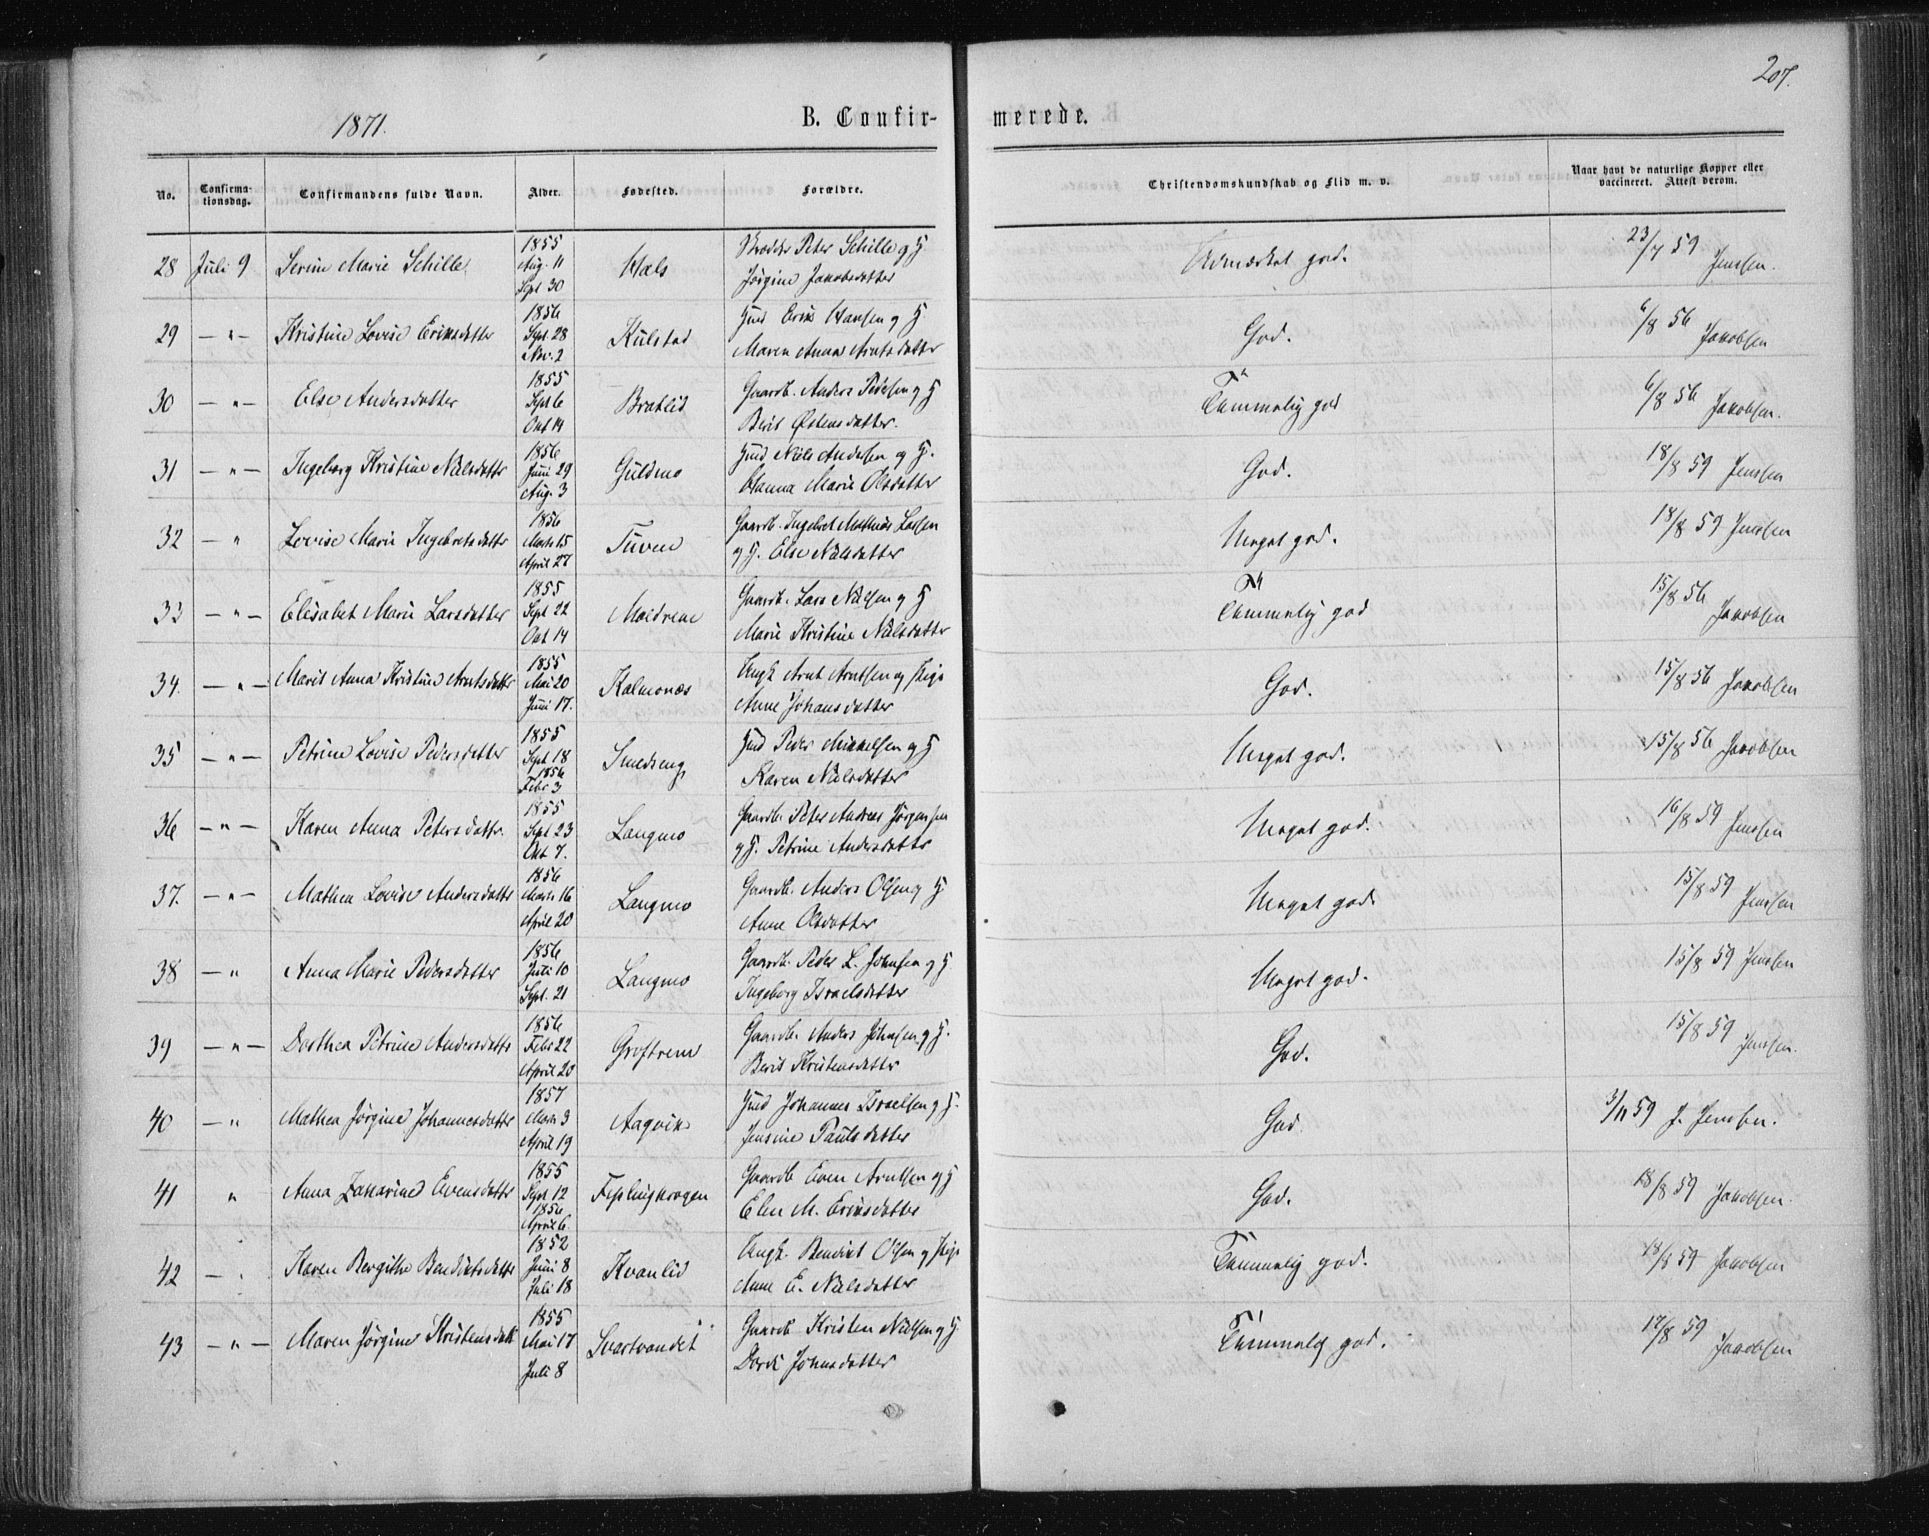 207.
1871.
B. Confirmerede.
No. Confirmationsdag. Confirmandens fulde Navn. Alder. Fødested. Forældre. Christendomskundskab og Flid m. v. Naar havt de naturlige Kopper eller vaccineret. Attest derom.
28 Juli 9 Serine Marie Schille 1855 Aug. 11 Sept 30 Hals Peter Schille og H. Jørgine Jakobsdatter Udmærket god. 23/7 59 Jenssen.
29 — " — Kristine Lovise Eriksdatter 1856 Sept. 28 Nov. 2 Kulstad Hmd Erik Hansen og H. Maren Anna Arntsdatter God. 6/8 56 Jakobsen
30 — " — Else Andersdatter 1855 Sept 6 Okt 14 Bratlid Gaardb. Anders Pedersen og H Berit Østensdatter. Temmelig god 6/8 56 Jakobsen.
31 — " — Ingeborg Kristine Nielsdattr 1856 Juni 29 Aug. 3 Guldmo Hmd Niels Andersen og H. Hanna Marie Olsdatter God. 18/8 59 Jenssen
32 — " Lovise Marie Ingebretsdattr 1856 Marts 15 April 27 Tuven Gaardb. Ingebret Mathias Larsen og H. Else Nielsdatter Meget god. 18/8 59 Jenssen
33 — " — Elisabet Marie Larsdatter 1855 Sept 22 Okt 14 Moldrem Gaardb. Lars Nielsen og H Marie Kristine Nielsdatter Temmelig god 15/8 56 Jakobsen
34. — " — Marit Anna Kristine Arntsdattr 1855 Mai 20 Juni 17. Kalmonæs Ungk. Arnt Arntsen og Pige Anne Johansdatter God. 15/8 56 Jakobsen
35 — " — Petrine Lovise Pedersdatter 1855 Sept 18 1856 Febr 3 Smedseng Hmd Peder Mikkelsen og H Karen Nielsdatter Meget god. 15/8 56 Jakobsen
36 — " — Karen Anna Petersdattr. 1855 Sept 23 Okt 7. Langmo Gaardb. Peter Andreas Jørgensen og H. Petrine Andersdattr Meget god. 16/8 59 Jenssen
37. — " — Mathea Lovise Andersdattr 1856 Marts 16 April 20 Langmo Gaardb. Anders Olsen og H Anne Olsdatter Meget god. 15/8 59 Jenssen
38 — " Anna Marie Pedersdatter 1856 Juli 10 Sept. 21 Langmo Gaardb. Peder L. Johnsen og H Ingeborg Israelsdatter Meget god. 15/8 59 Jenssen
39 — " — Dorthea Petrine Andersdattr 1856 Febr 22 April 20 Groftrem Gaardb. Anders Johnsen og H. Berit Kristensdattr God. 15/8 59 Jenssen.
40 — " Mathea Jørgine Johannesdatter 1857 Marts 3 April 19 Aagvik Hmd Johannes Israelsen og H. Jensine Paulsdatter God 3/11 59 J. Jenssen.
41 " Anna Zakarine Evensdattr 1855 Sept 12 1856 April 6 Fiplingkrogen Gaardb Even Arntsen og H Elen M. Eriksdatter God. 18/8 59 Jakobsen.
42 — " Karen Bergithe Benediktsdattr 1852 Juni 8 Juli 18 Kvanlid Ungk. Benedikt Olsen og Pige Anne E. Nielsdatter Temmelig god. 18/8 59 Jakobsen
43 — " — Maren Jørgine Kristensdatt 1855 Mai 17 Juli 8 Svartvandet Gaardb. Kristen Nielsen og H. Dordi Johnsdatter Temmelig god. 17/8 59 Jakobsen